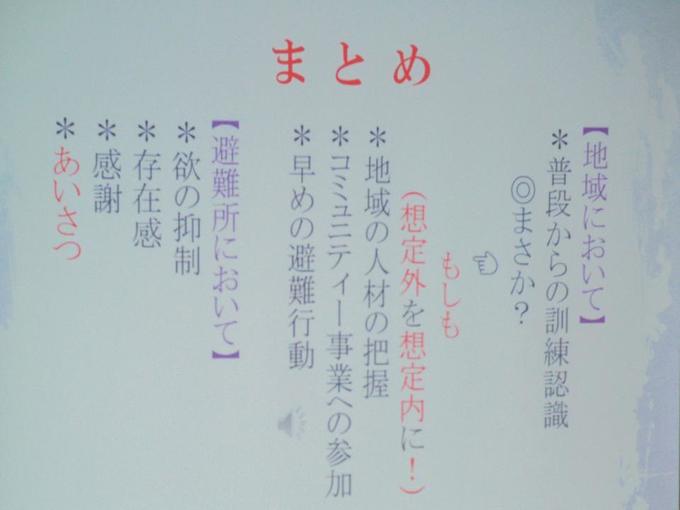 まとめ
【地域において】
＊普段からの訓練認識
◎まさか？
☜
もしも
(想定外を想定内に！)
＊地域の人材の把握
＊コミュニティー事業への参加
＊早めの避難行動
【避難所において】
＊欲の抑制
＊存在感
＊感謝
＊あいさつ